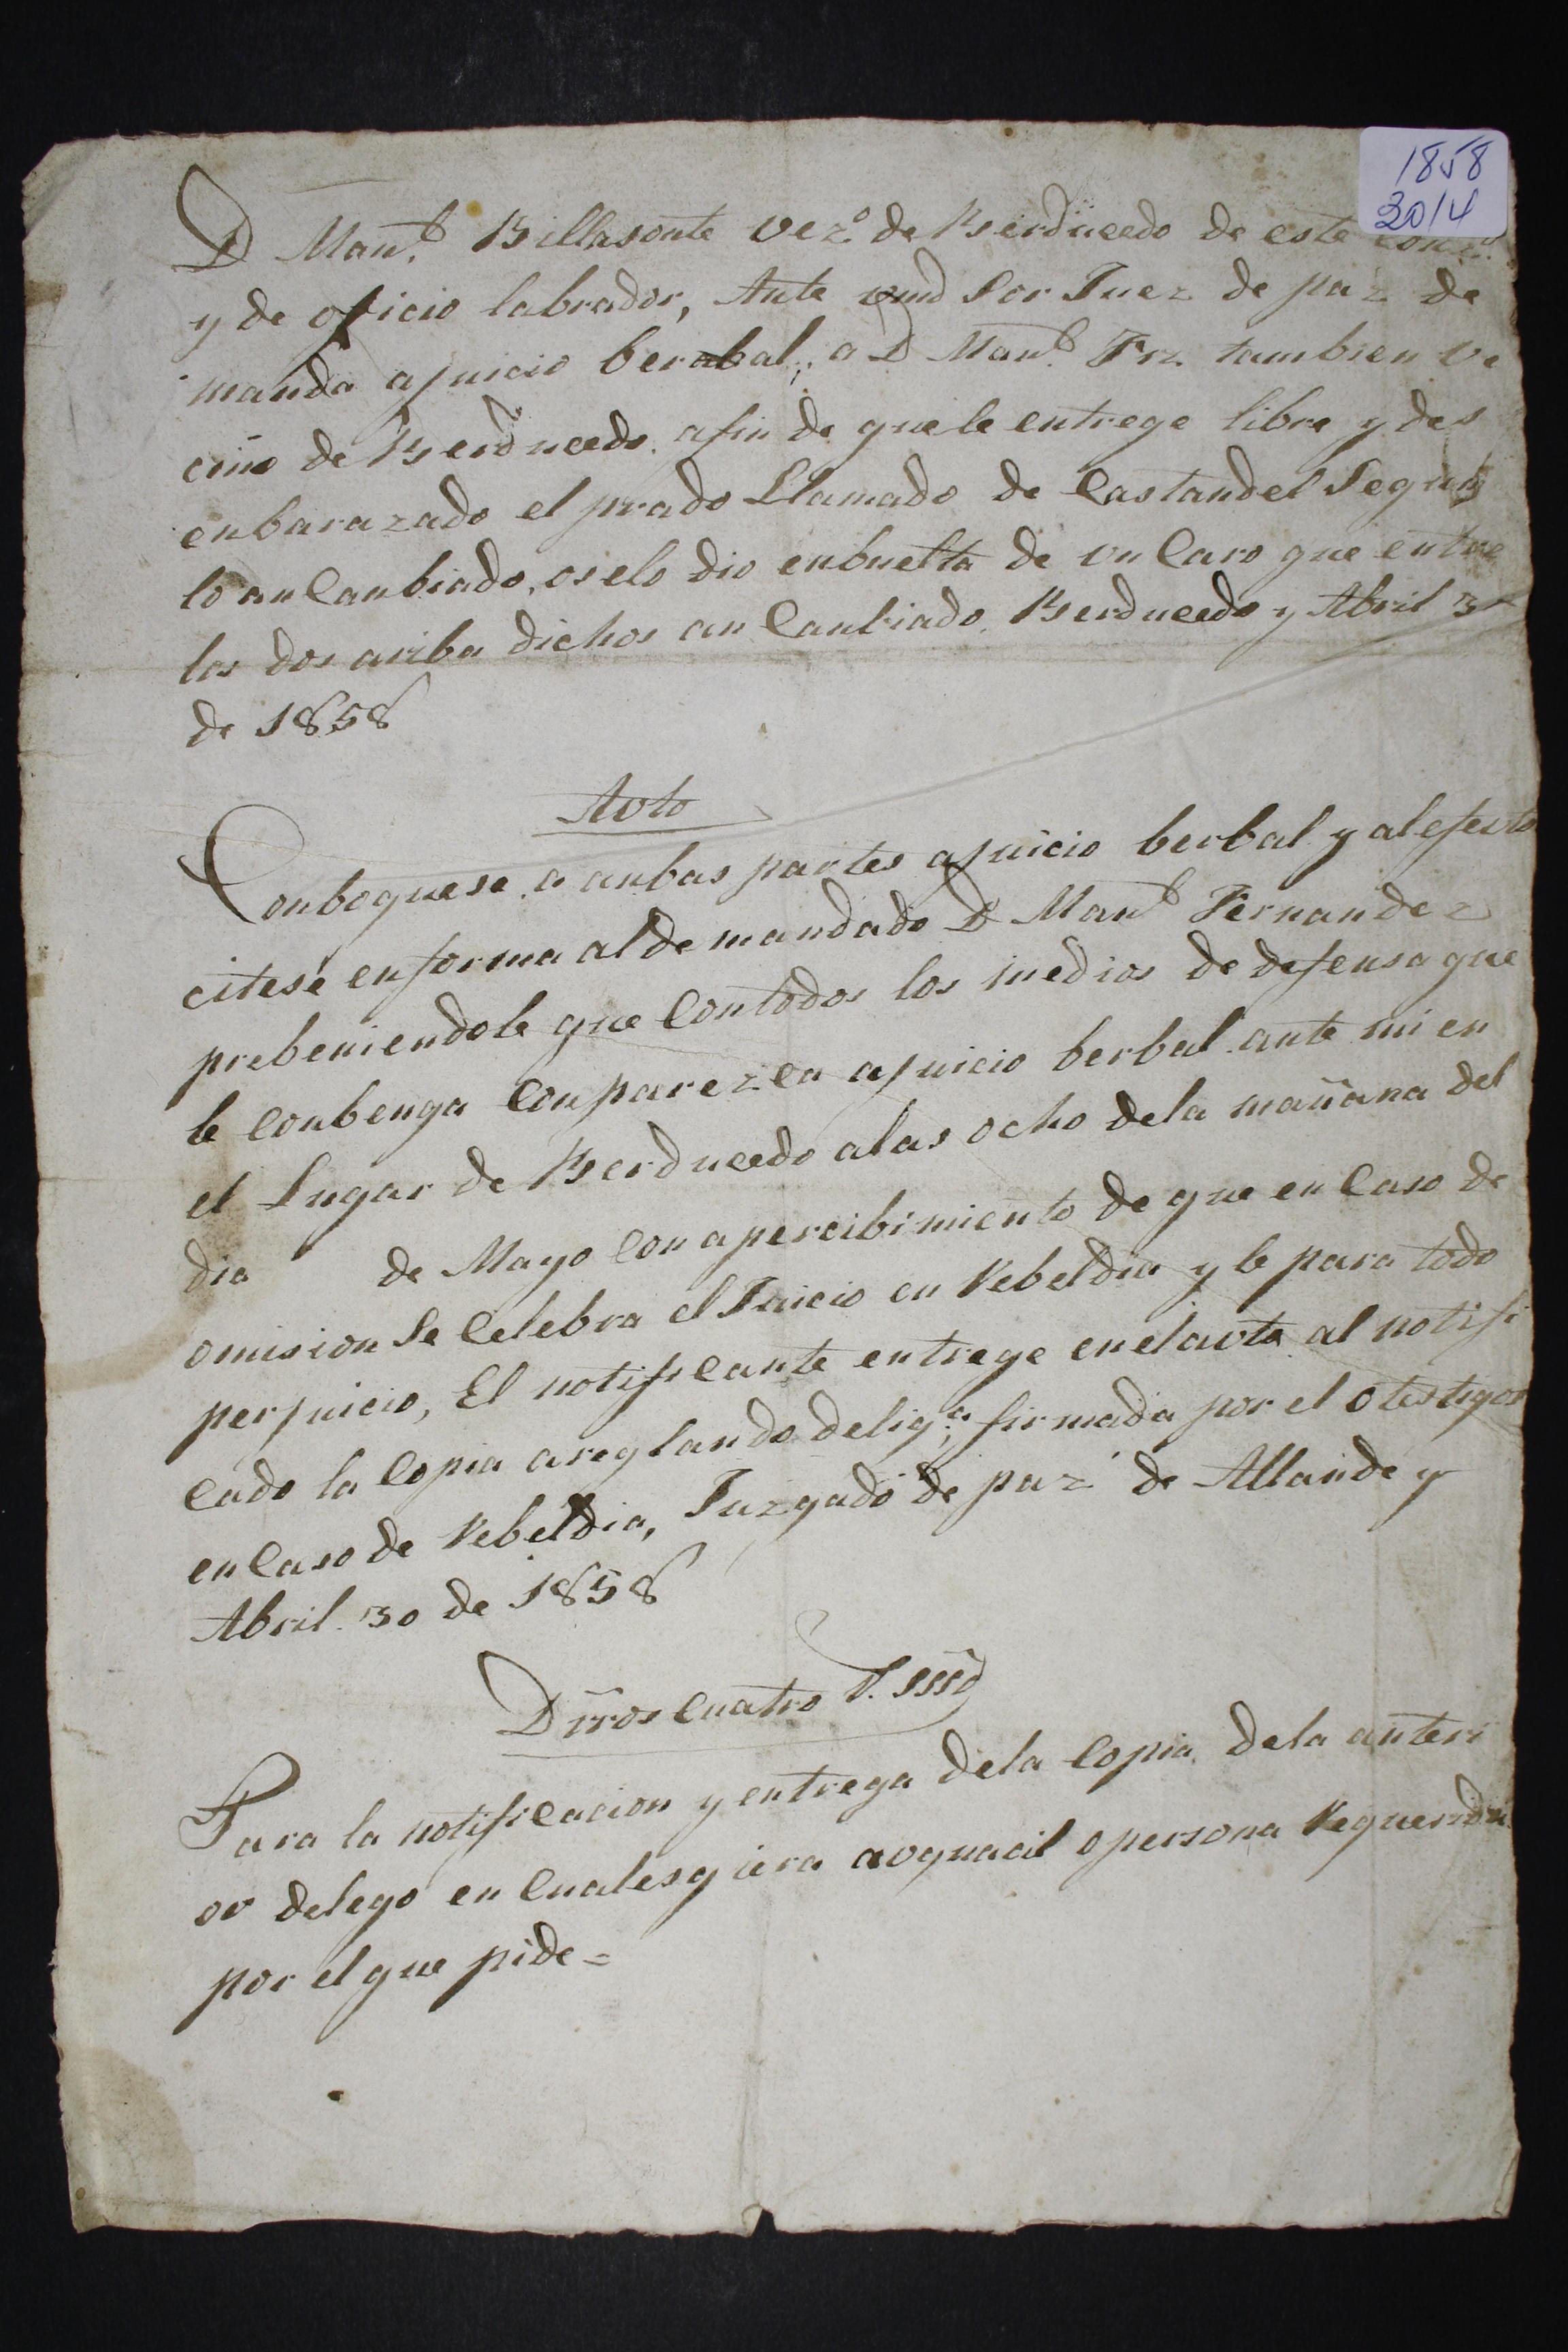 1858
3014
D Man.l Billasonte vez.o de Berducedo de este conz.o
y de oficio labrador, Ante vmd Sor Juez de paz de
manda ajuicio berabal, a D Man.l Frz tambien ve
cino de Berducedo afin de quele entrege libre y des
enbarazado el prado Llamado de Castandel Segun
lo an Canbiado, oselo dio enbuelta de un Caro que entre
los dos ariba dichos an Canbiado. Berducedo y Abril 3
de 1858
Avto
Conboquese a anbas partes ajuicio berbal y alefecto
citese enforma aldemandado D Man.l Fernandez
prebeniendole que Contodos los medios de defensa que
le Conbenga Conparezca ajuicio berbal ante mi en
el Lugar de Berducedo alas ocho dela mañana del
dia de Mayo Con apercibimiento de que en Caso de
omision Se Celebra el Juicio en Rebeldia y le para todo
perjuicio, El notificante entrege enelavto al notifi
cado la Copia areglando delig.a firmada por el o testigos
enCaso de Rebeldia, Juzgado de paz de Allande y
Abril 30 de 1858
Drros Cuatro
Para la notificacion y entrega dela Copia dela anteri
or delego en Cualesqiera avguacil opersona Requerida
por el que pide =